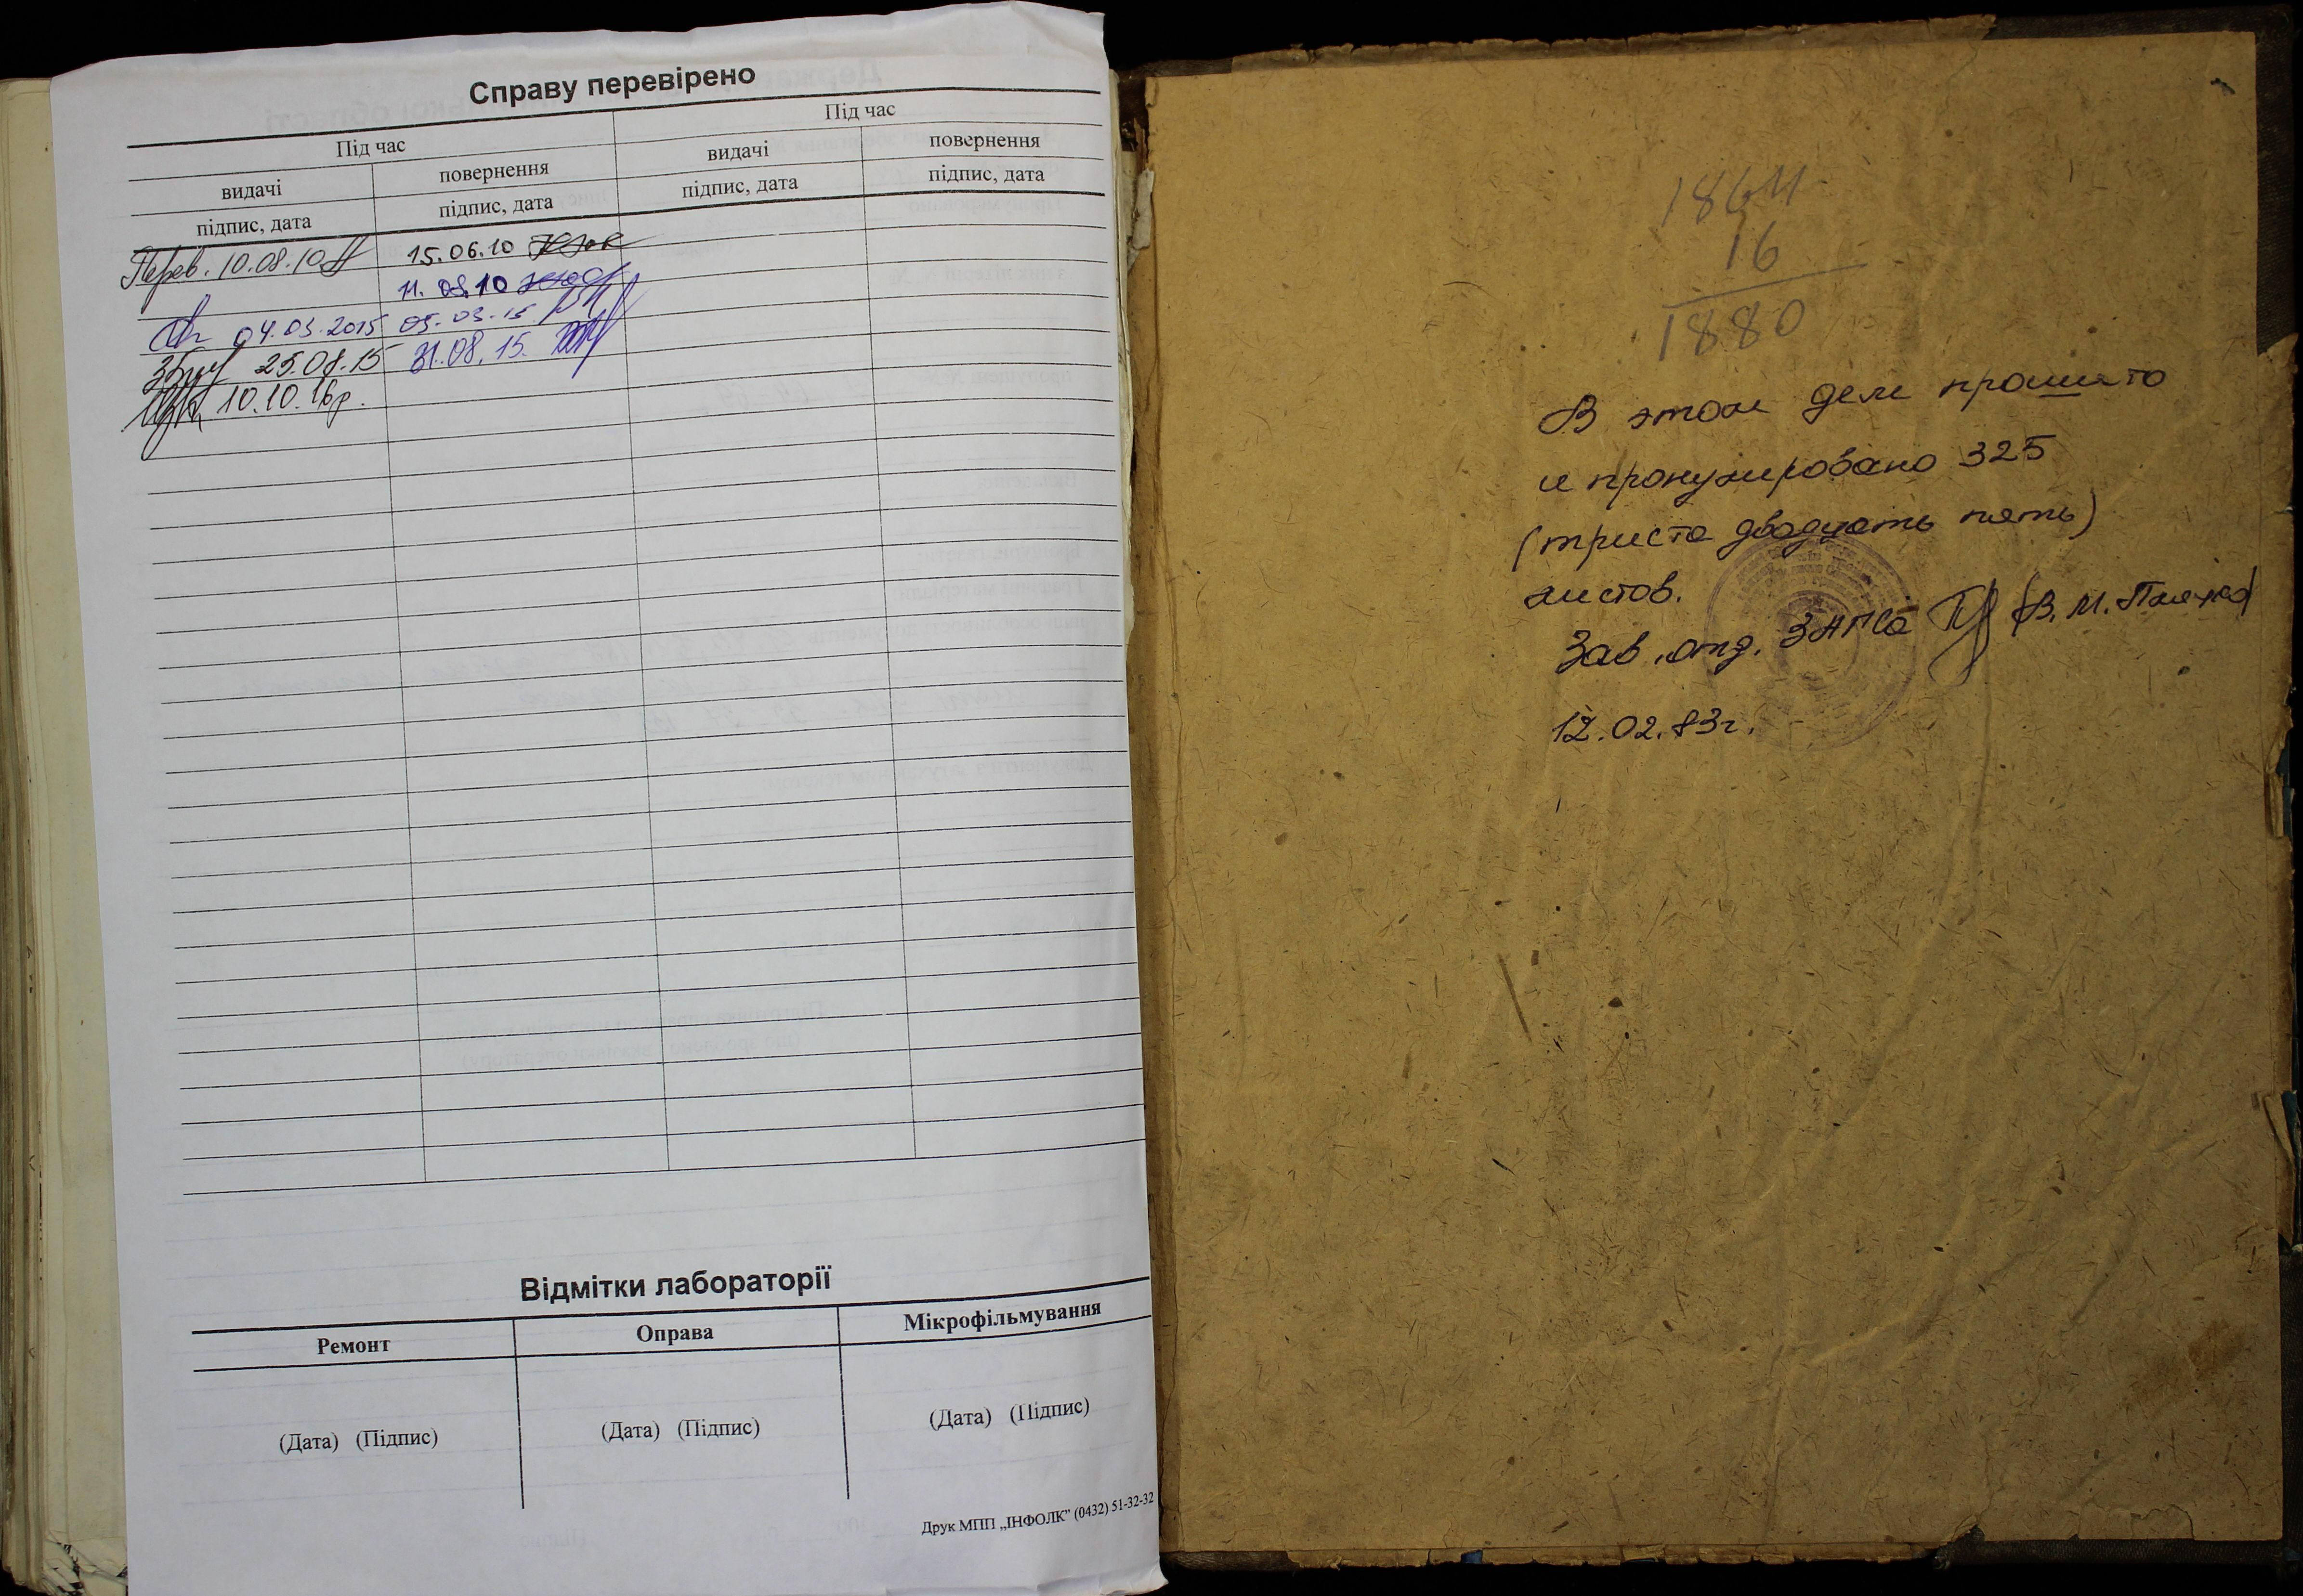 Справу перевірено
Під час Під час
видачі повернення видачі повернення
підпис, дата підпис, дата підпис, дата підпис, дата
Перев. 10.08.10 15.06.10
11.08.10
04.03.2015 05.03.15
25.08.15 31.08.15.
10.10.16р.
Відмітки лабораторії
Ремонт Оправа Мікрофільмування
(Дата) (Підпис) (Дата) (Підпис) (Дата) (Підпис)
Друк МПП „ІНФОЛК” (0432) 51-32-32
1864
16
1880
В этом деле прошито
и пронумеровано 325
(триста двадцать пять)
листов.
Зав. отд. ЗАГСа (В. М.
12.02.83г.